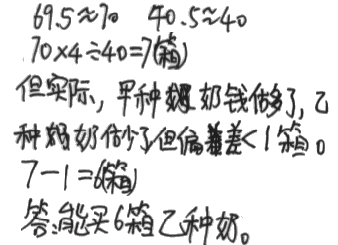 69.5≈70 40.5≈40
70×4÷40=7(箱)
但实际，甲种奶钱估多了，乙
种奶估少了但偏差<1箱。
7-1=6(箱)
答:能买6箱乙种奶。